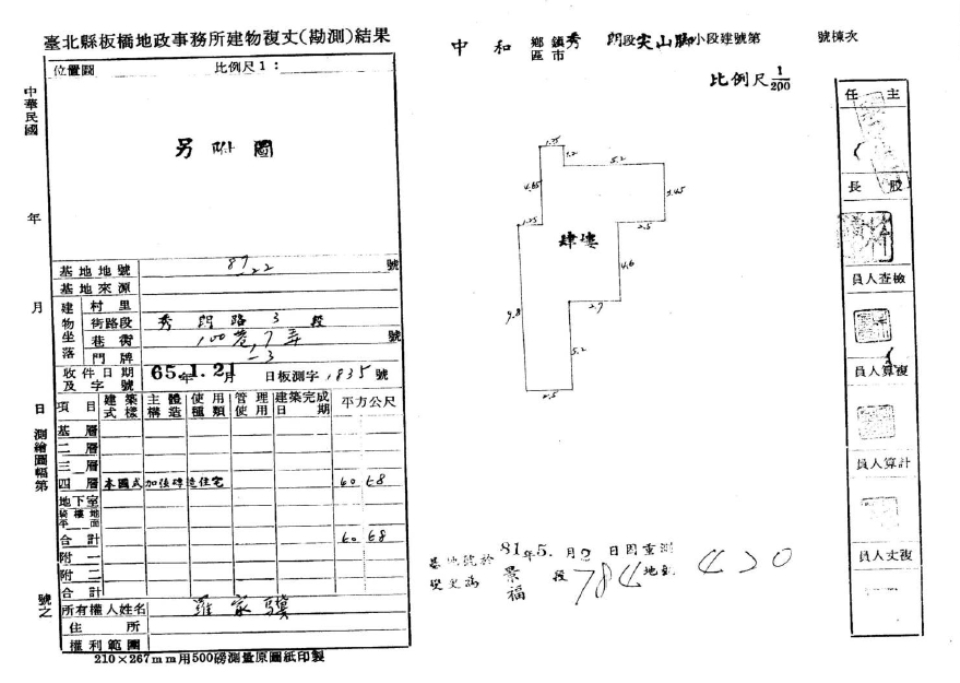 臺北縣板橋地政事務所建物複丈(勘測)結果
位置圖 比例尺1：
另附圖
中華民國 年 月 日 測繪圖幅第 號之
基地地號 87-22 號
基地來源
建物坐落
村里
街路段 秀朗路3段
巷衖 100巷7弄 號
門牌
收件日期及字號 65年1.21月 日板測字1835號
項目 建築式樣 主體構造 使用種類 管理使用 建築完成日期 平方公尺
基層
二層
三層
四層 本國式 加強磚造 住宅 60 68
地下室
騎樓地平面
合計 60 68
附一
附二
合計
所有權人姓名
住所
權利範圍
210×267mm用500磅測量原圖紙印製
中和 鄉鎮市區 秀朗段尖山腳小段建號第 號棟次
比例尺 1/200
1.75
1.2
5.2
4.65
3.45
1.25
2.5
肆樓
4.6
9.8
2.7
5.2
2.5
基地號於81年5月2日因重測
變更為景福段784地號
主任
股長
檢查人員
複算人員
計算人員
複丈人員